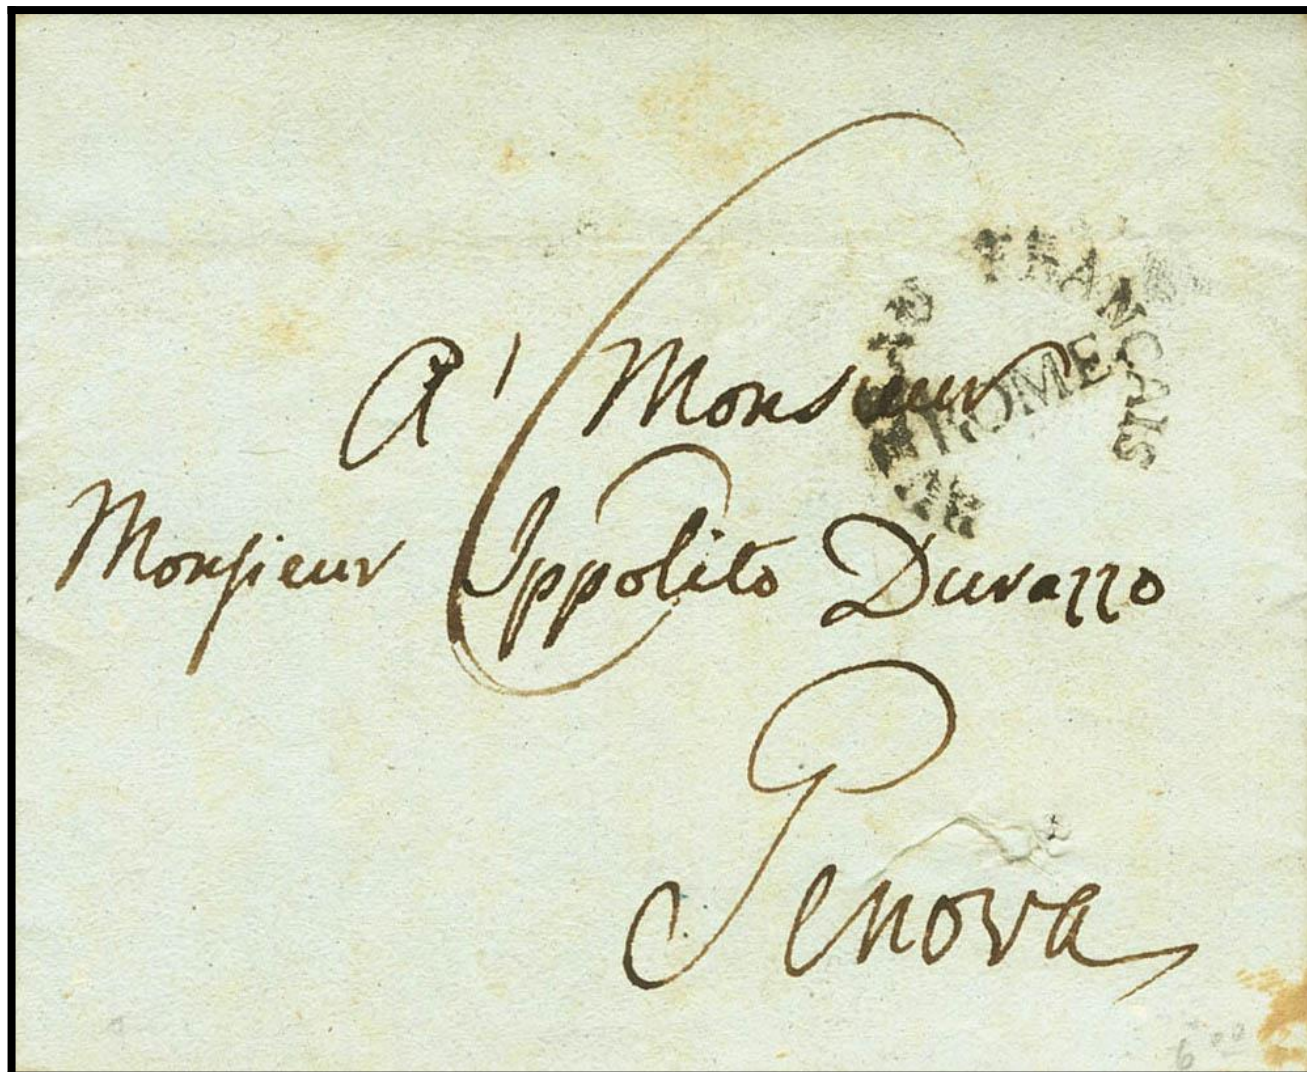 BUREAU FRANÇAIS
ROME
A' Monsieur
Monsieur Ippolito Durazzo
Genova
6 00